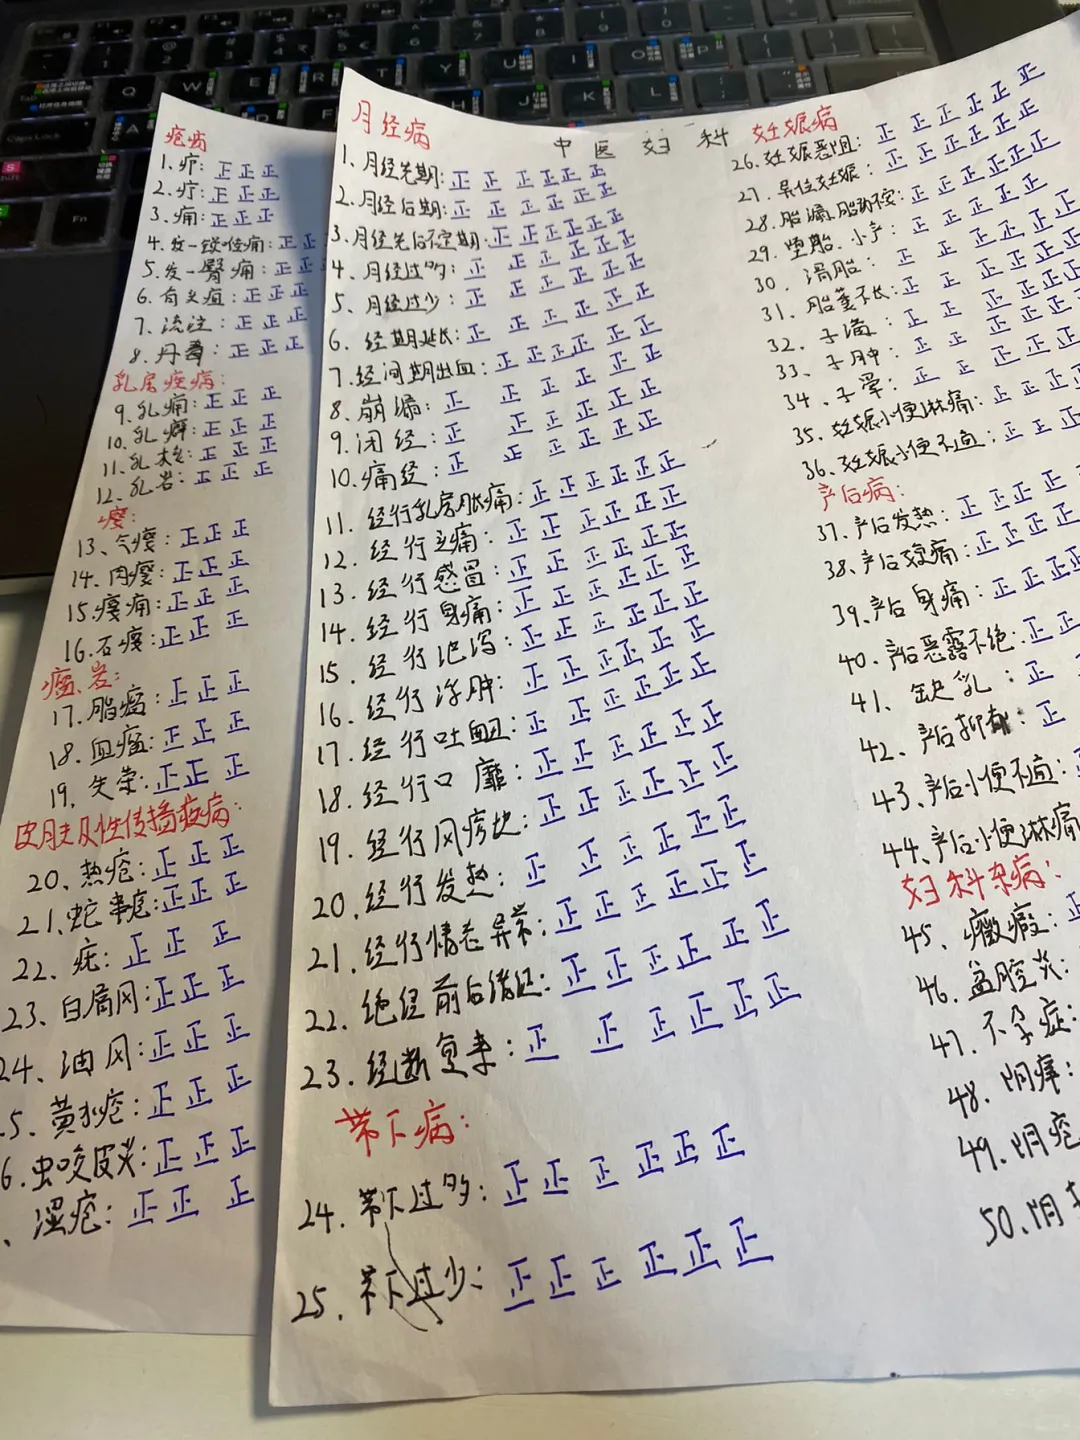 疮疡
1.疖:正正正
2.疔:正正正
3.痈:正正正
4.发—锁喉痈:正正
5.发—臀痈:正正
6.有头疽:正正正
7.流注:正正正
8.丹毒:正正正
乳房疾病:
9.乳痈:正正正
10.乳癖:正正正
11.乳核:正正正
12.乳岩:正正正
瘿:
13、气瘿:正正正
14.肉瘿:正正正
15.瘿痈:正正正
16.石瘿:正正正
瘤、岩:
17.脂瘤:正正正
18.血瘤:正正正
19.失荣:正正正
皮肤及性传播疾病:
20、热疮:正正正
21.蛇串疮:正正正
22.疣:正正正
23、白屑风:正正正
24、油风:正正正
5、黄水疮:正正正
6.虫咬皮炎:正正正
、湿疮:正正正
中医妇科
月经病
1.月经先期:正正正正正正
2.月经后期:正正正正正正
3.月经先后不定期:正正正正正正
4.月经过多:正正正正正
5.月经过少:正正正正正
6.经期延长:正正正正正
7.经间期出血:正正正正正正
8.崩漏:正正正正正
9.闭经:正正正正正
10.痛经:正正正正正
11.经行乳房胀痛:正正正正正正
12.经行头痛:正正正正正正
13.经行感冒:正正正正正正
14.经行身痛:正正正正正正
15.经行泄泻:正正正正正正
16.经行浮肿:正正正正正正
17.经行吐衄:正正正正正正
18.经行口糜:正正正正正正
19.经行风疹块:正正正正正正
20.经行发热:正正正正正正
21.经行情志异常:正正正正正正
22.绝经前后诸证:正正正正正正
23.经断复来:正正正正正正
带下病:
24.带下过多:正正正正正正
25.带下过少:正正正正正正
妊娠病
26.妊娠恶阻:正正正正正
27.异位妊娠:正正正正正
28.胎漏、胎动不安:正正正正正
29.堕胎、小产:正正正正正
30.滑胎:正正正正正
31.胎萎不长:正正正正正
32.子满:正正正正正
33.子肿:正正正正正
34.子晕:正正正正正
35.妊娠小便淋痛:正正正正
36.妊娠小便不通:正正正
产后病:
37.产后发热:正正正正
38.产后腹痛:正正正正
39.产后身痛:正正正正
40.产后恶露不绝:正正
41.缺乳:正
42、产后抑郁:正
43.产后小便不通:
44、产后小便淋痛
妇科杂病:
45、癥瘕:
46.盆腔炎:
47.不孕症:
48.阴痒:
49.阴疮
50.阴